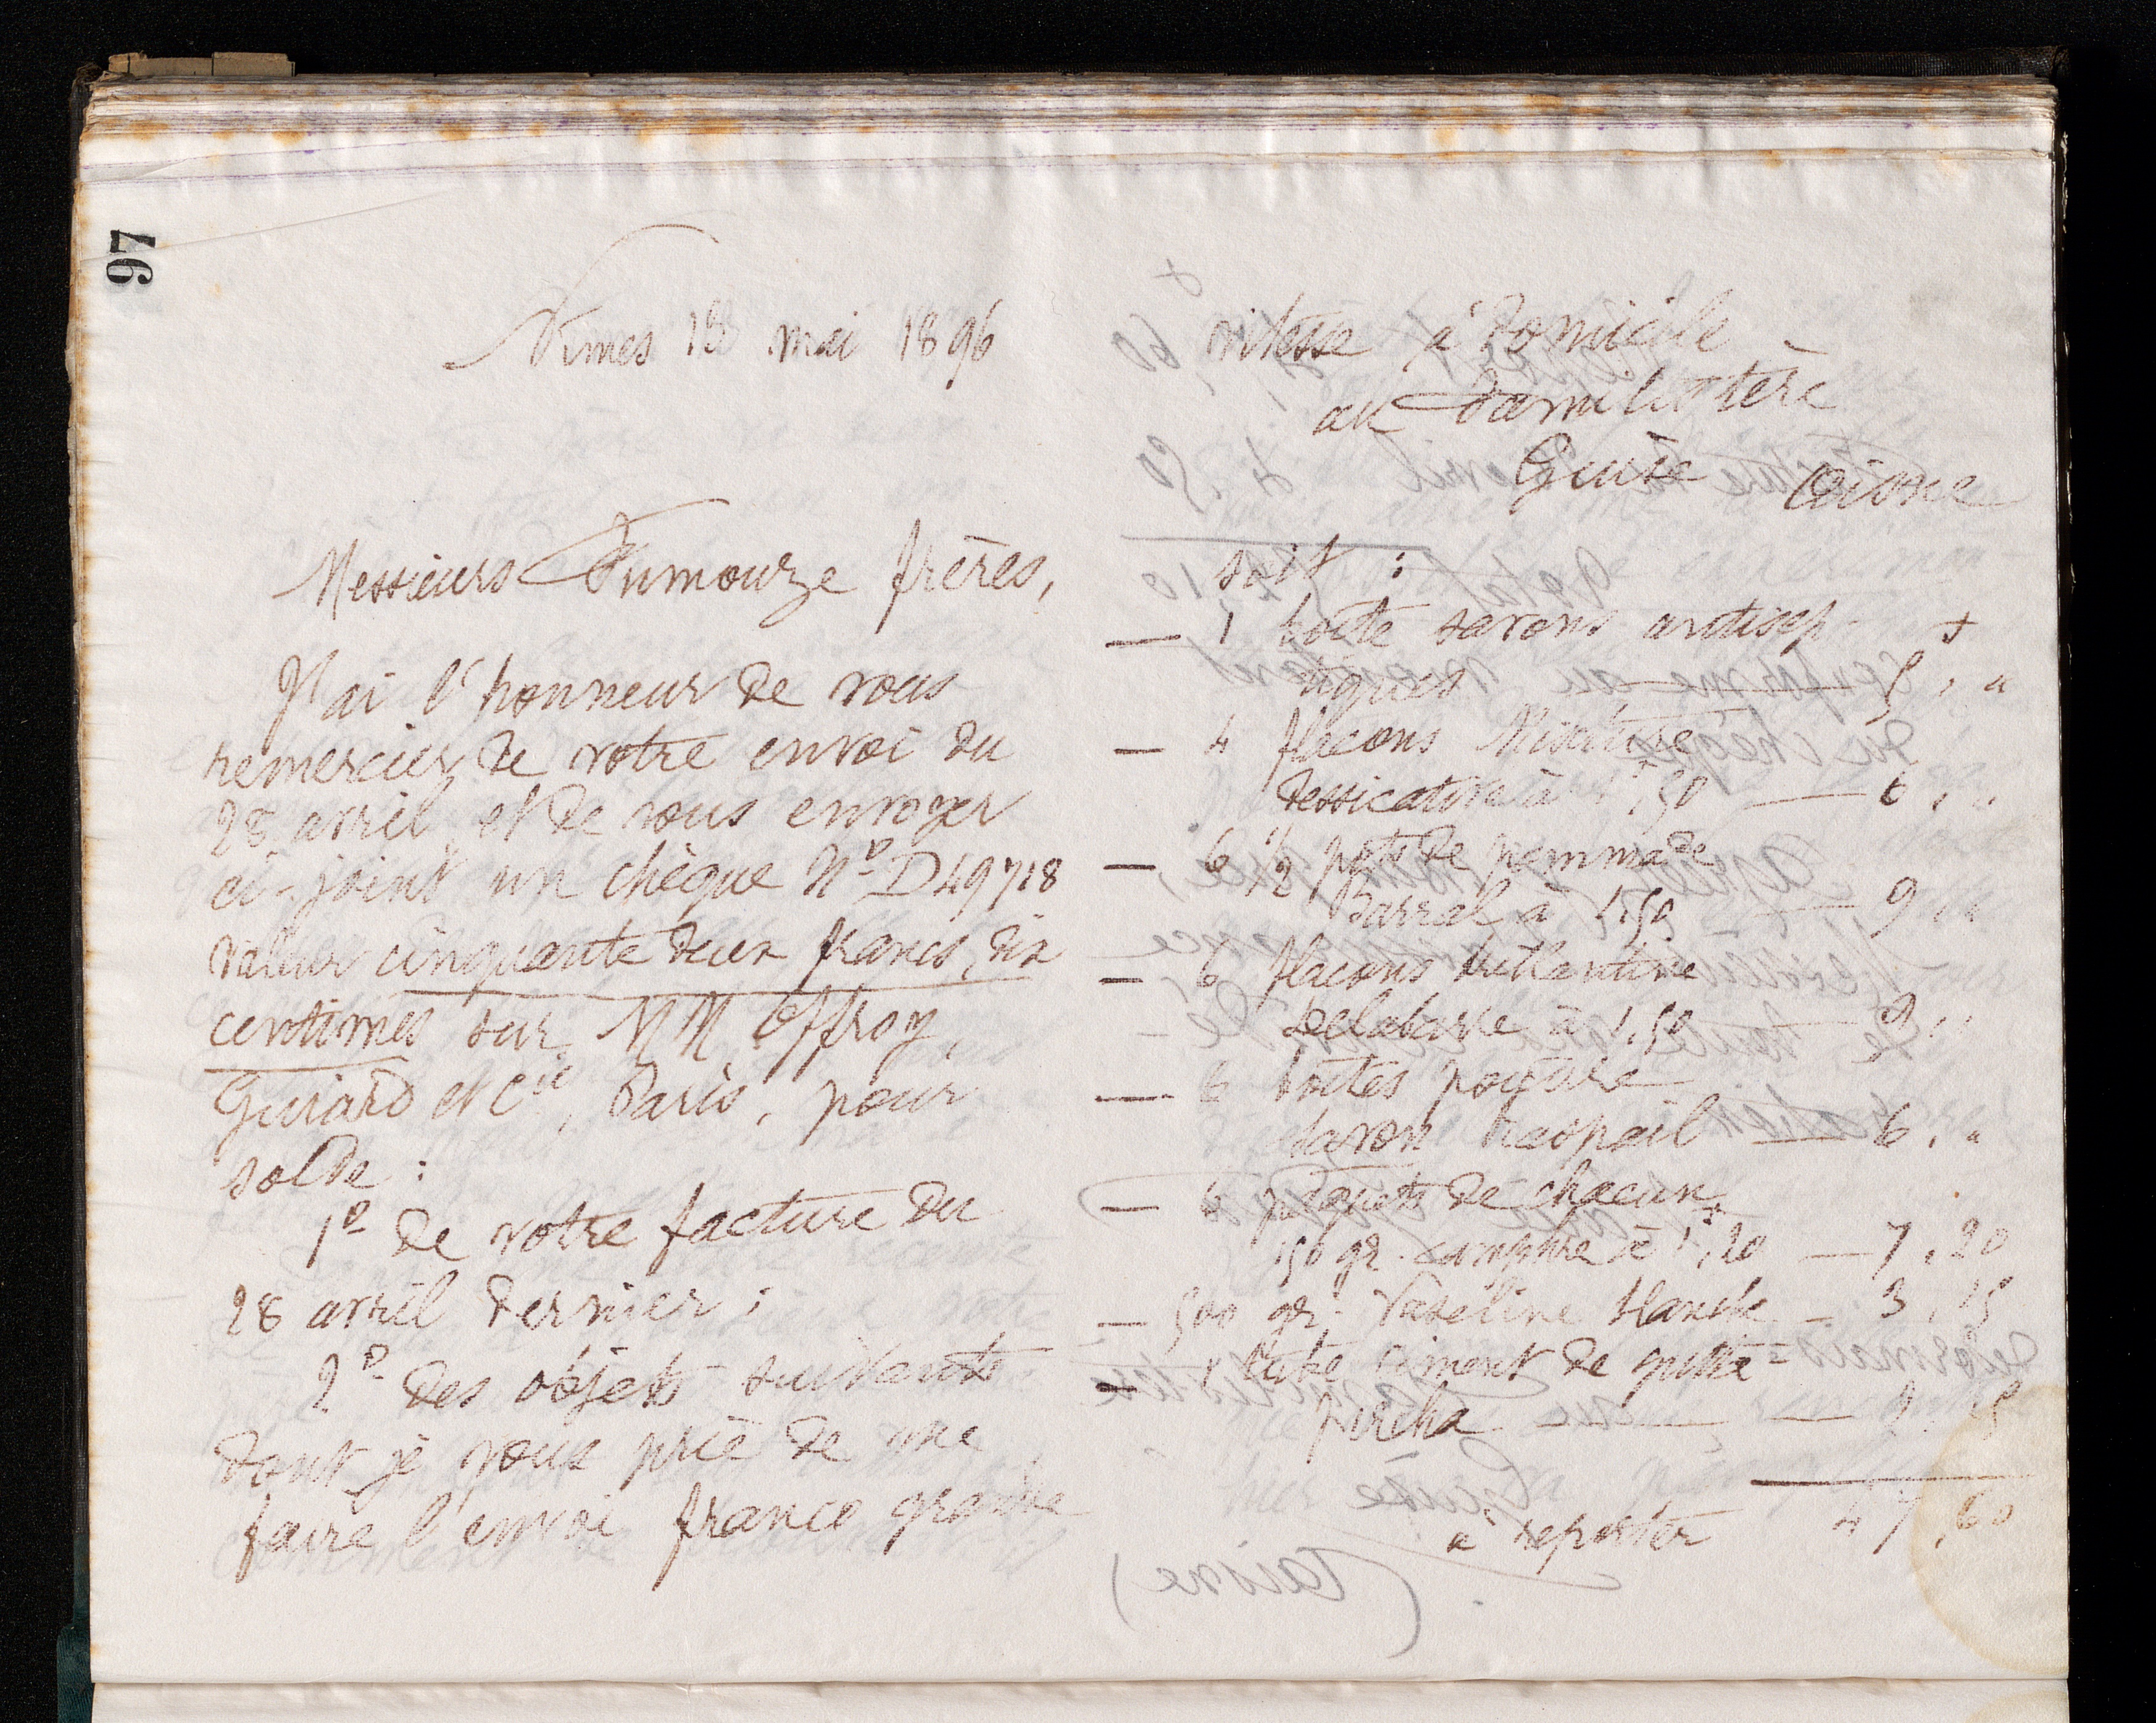 97
Nimes 18 mai 1896
Messieurs Fumouze frères,
J'ai l'honneur de vous
remercier de votre envoi du
28 avril et de vous envoyer
ci-joint un chèque No D49718
valeur cinquante deux francs, dix
centimes sur MM Offroy,
Guiard et Cie, Paris, pour
solde :
1o de votre facture du
28 avril dernier ;
2o des objets suivants
dont je vous prie de me
faire l'envoi franco grande
vitesse à domicile
au Familistère
Guise Aisne
soit :
— 1 boîte savons antisep-
tiques — 5, "
— 4 flacons Mixture
dessicative à 1f,50 — 6, "
— 6 1/2 pots de pommade
Barral à 1.50 — 9 "
— 6 flacons brillantine
Delabarre à 1.50 — 9 "
— 6 boîtes poudre
savon Raspail — 6, "
— 6 paquets de chacun
150 gr. camphre à 1f,20 — 7,20
— 500 gr. Vaseline blanche — 3,15
— 1 tube ciment de gutta-
percha —
à reporter 47,60